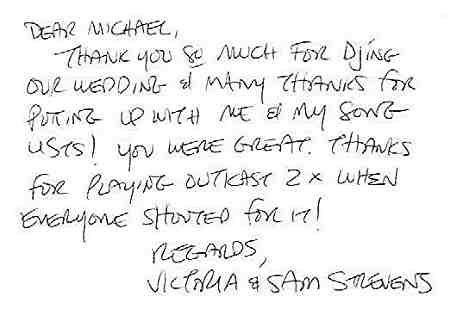 DEAR MICHAEL,
THANK YOU SO MUCH FOR DJING
OUR WEDDING & MANY THANKS FOR
PUTING UP WITH ME & MY SONG
LISTS! YOU WERE GREAT. THANKS
FOR PLAYING OUTKAST 2x WHEN
EVERYONE SHOUTED FOR IT!
REGARDS,
VICTORIA & SAM STEVENS